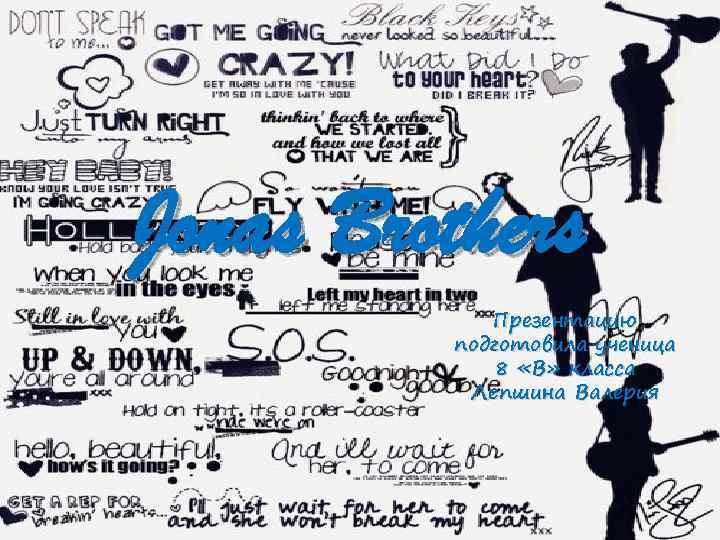 DON'T SPEAK
to me...
GOT ME GOING
CRAZY!
GET AWAY WITH ME 'CAUSE
I'M SO IN LOVE WITH YOU
Black Keys
never looked so beautiful...
What Did I Do
to your heart?
DID I BREAK IT?
Just TURN RIGHT
into my arms
thinkin' back to where
WE STARTED.
and how we lost all
THAT WE ARE
HEY BABY!
KNOW YOUR LOVE ISN'T TRUE
I'M GOING CRAZY
FLY WITH ME!
Jonas Brothers
be mine
when you look me
in the eyes
Left my heart in two
left me standing here
xxx
Still in love with
you
Презентацию
подготовила ученица
8 «В» класса
Лепшина Валерия
UP & DOWN,
you're all around
xxx
S.O.S.
Goodnight &
goodbye
Hold on tight, it's a roller-coaster
ride we're on
hello, beautiful,
how's it going?
And i'll wait for
her, to come
GET A REP FOR
breakin' hearts...
I'll just wait for her to come
and she won't break my heart
xxx